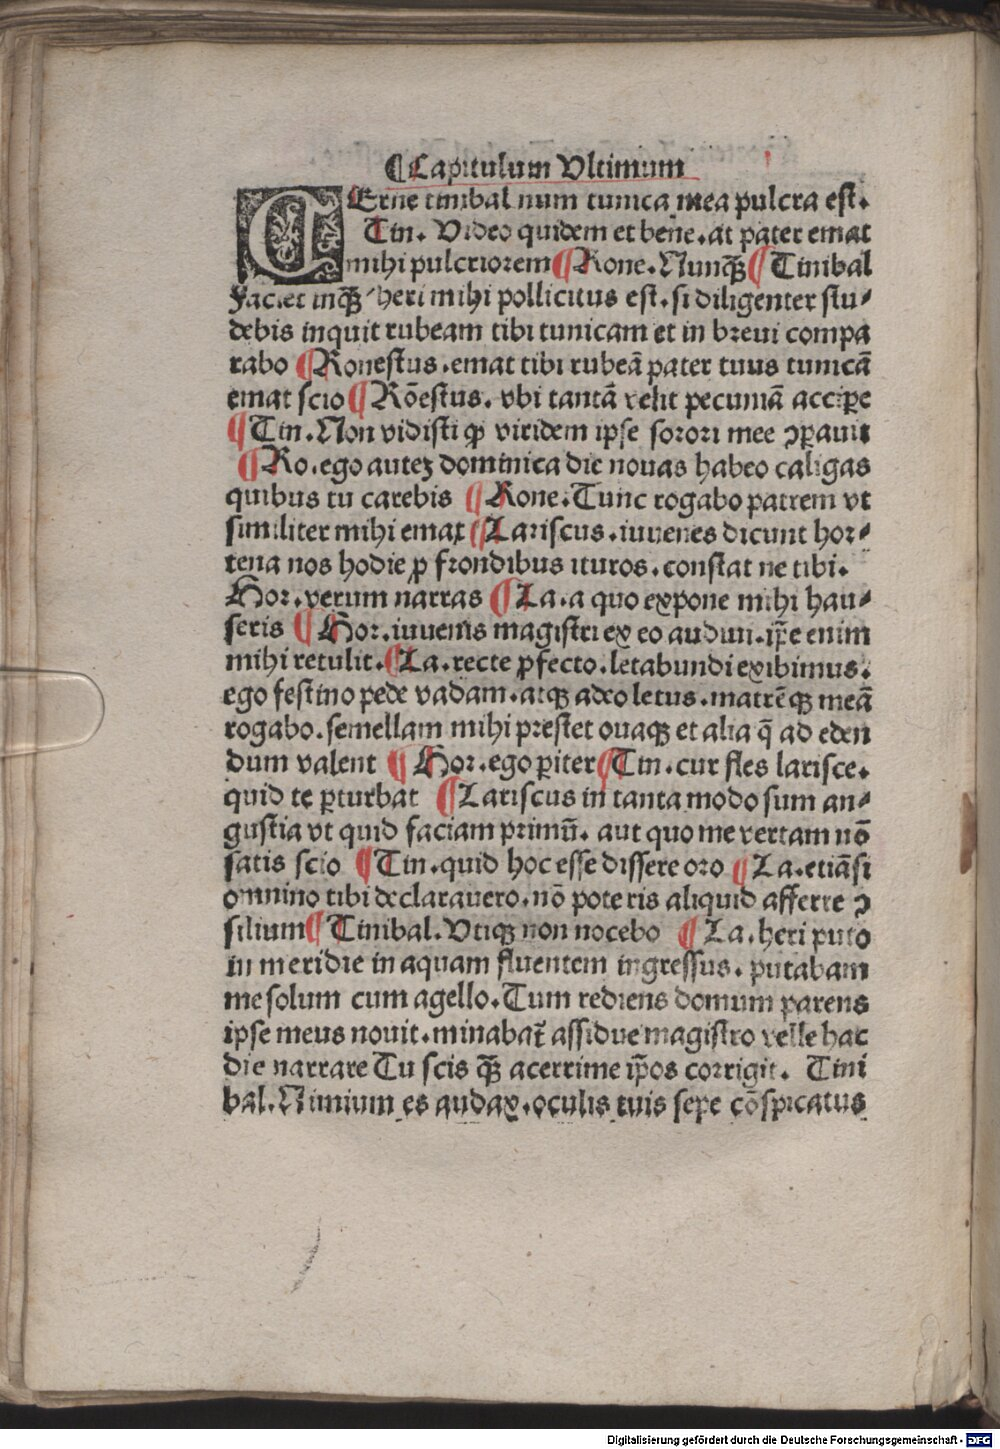 ¶Capitulum Vltimum
CErne tinibal num tunica mea pulcra est.
Tin. Video quidem et bene. at pater emat
mihi pulcriorem ¶Rone. Nunq̃ ¶Tinibal
Faciet inq̃ heri mihi pollicitus est. si diligenter stu⸗
debis inquit rubeam tibi tunicam et in breui compa
rabo ¶Ronestus. emat tibi rubeã pater tuus tunicã
emat scio ¶Rõestus. vbi tantã velit pecuniã accipe
¶Tin. Non vidisti ꝙ viridem ipse sorori mee ꝯꝑauit
¶Ro. ego autez dominica die nouas habeo caligas
quibus tu carebis ¶Rone. Tunc rogabo patrem vt
similiter mihi emat ¶Lariscus. iuuenes dicunt hor⸗
tena nos hodie ꝓ frondibus ituros. constat ne tibi.
Hor. verum narras ¶La. a quo expone mihi hau⸗
seris ¶Hor. iuuenis magistri ex eo audiui. ip̃e enim
mihi retulit. ¶La. recte ꝓfecto. letabundi exibimus.
ego festino pede vadam. atqꝫ adeo letus. matrẽqꝫ meã
rogabo. semellam mihi prestet ouaqꝫ et alia q̃ ad eden
dum valent ¶Hor. ego ꝑiter ¶Tin. cur fles larisce.
quid te ꝑturbat ¶Lariscus in tanta modo sum an⸗
gustia vt quid faciam primũ. aut quo me vertam nõ
satis scio ¶Tin. quid hoc esse dissere oro ¶La. etiãsi
omnino tibi declarauero. nõ poteris aliquid afferre ꝯ
silium ¶Tinibal. Vtiqꝫ non nocebo ¶La. heri puto
in meridie in aquam fluentem ingressus. putabam
me solum cum agello. Tum rediens domum parens
ipse meus nouit. minabat̃ assidue magistro velle hac
die narrare Tu scis q̃ acerrime ip̃os corrigit. Tini
bal. Nimium es audax. oculis tuis sepe cõspicatus
Digitalisierung gefördert durch die Deutsche Forschungsgemeinschaft - DFG